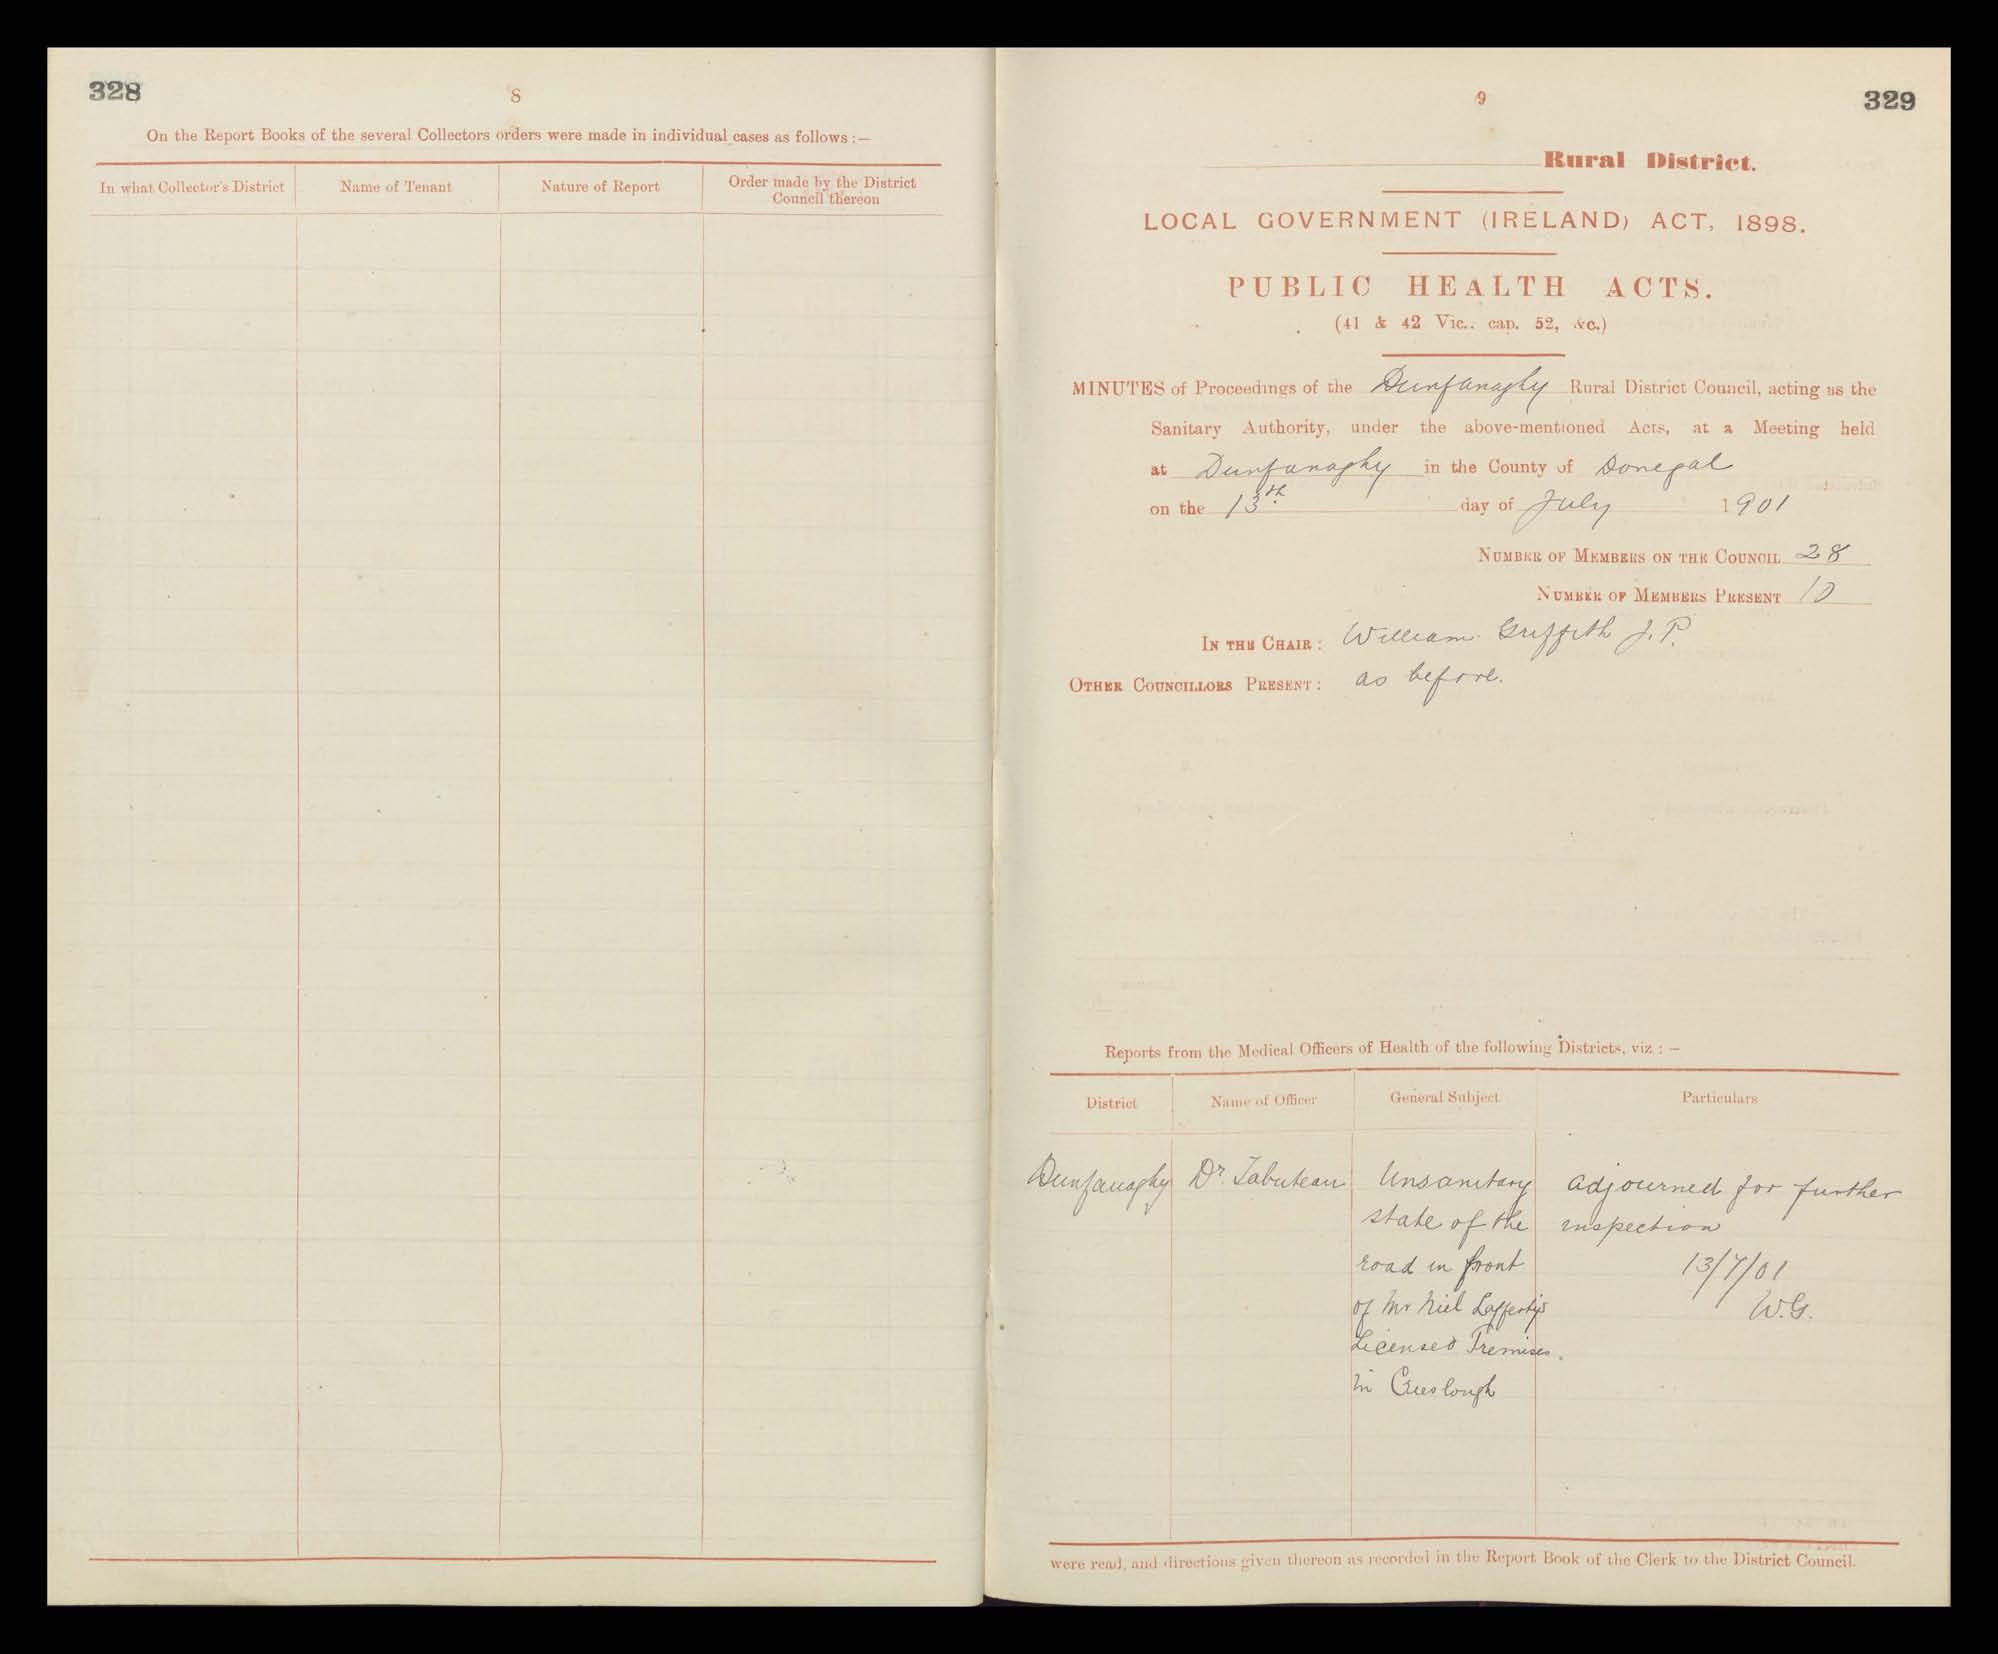 328
8
On the Report Books of the several Collectors orders were made in individual cases as follows :—
In what Collector's District
Name of Tenant
Nature of Report
Order made by the District
Council thereon
9
329
Rural District.
LOCAL GOVERNMENT (IRELAND) ACT, 1898.
PUBLIC HEALTH ACTS.
(41 & 42 Vic.. cap. 52, &c.)
MINUTES of Proceedings of the Dunfanaghy Rural District Council, acting as the
Sanitary Authority, under the above-mentioned Acts, at a Meeting held
at Dunfanaghy in the County of Donegal
on the 13th day of July 1901
NUMBER OF MEMBERS ON THE COUNCIL 28
NUMBER OF MEMBERS PRESENT 10
IN THE CHAIR : William Griffith J. P.
OTHER COUNCILLORS PRESENT : as before.
Reports from the Medical Officers of Health of the following Districts, viz : —
District
Name of Officer
General Subject
Particulars
Dunfanaghy Dr. Tabuteau Unsanitary adjourned for further
state of the inspection
road in front 13/7/01
of Mr Niel Lafferty's W.G.
Licensed Premises.
in Creeslough
were read, and directions given thereon as recorded in the Report Book of the Clerk to the District Council.